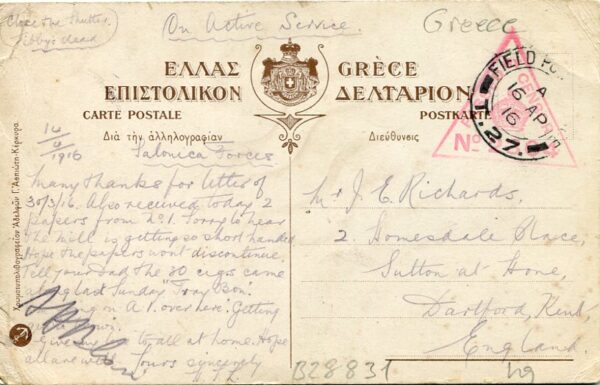 Close the shutter,
Libby's dead
On Active Service.
Greece
ΕΛΛΑΣ GRÈCE
ΕΠΙΣΤΟΛΙΚΟΝ ΔΕΛΤΑΡΙΟΝ
CARTE POSTALE POSTKARTE
Διὰ τὴν ἀλληλογραφίαν Διεύθυνσις
FIELD PO
A
16 AP
16
T.27.
CEN
No 4
14/4/1916
Salonica Forces
Many thanks for letter of
30/3/16. Also received today 2
papers from No. 1. Sorry to hear
the mill is getting so short handed
Hope the papers wont discontinue.
Tell your Dad the 20 cigs came
along last Sunday "Tray Bon".
on A.1. over here. Getting
Give my to all at home. Hope
all are well. Yours sincerely
Mr J. E. Richards,
2. Homesdale Place,
Sutton at Hone,
Dartford, Kent,
England.
B28831
Χρωματολιθογραφεῖον Ἀδελφῶν Γ. Ἀσπιώτη-Κέρκυρα.